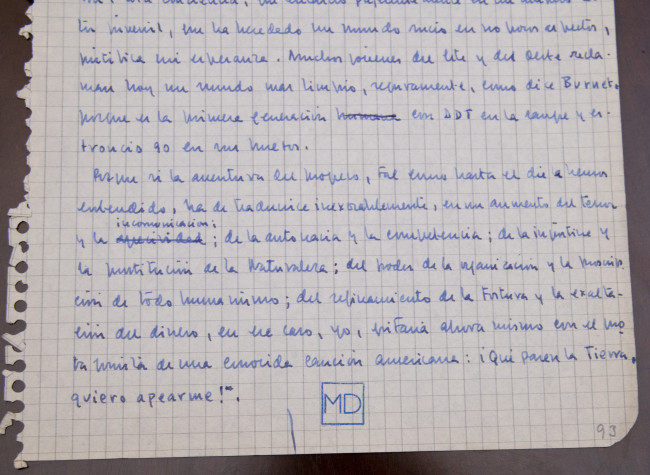 to juvenil, que ha heredado un mundo sucio en no pocos aspectos,
justifica mi esperanza. Muchos jóvenes del Este y del Oeste recla-
man hoy un mundo mas limpio, seguramente, como dice Burnet,
porque es la primera generación humana con DDT en la sangre y es-
troncio 90 en sus huesos.
Porque si la aventura del progreso, tal como hasta el día la hemos
entendido, ha de traducirse inexorablemente, en un aumento del temor
incomunicación;
y la ; de la autocracia y la competencia; de la injusticia y
la prostitución de la Naturaleza; del poder de la organización y la proscrip-
ción de todo humanismo; del refinamiento de la Tortura y la exalta-
ción del dinero, en ese caso, yo, gritaría ahora mismo con el pro-
tagonista de una conocida canción americana: ¡Que paren la Tierra,
quiero apearme!".
MD
93